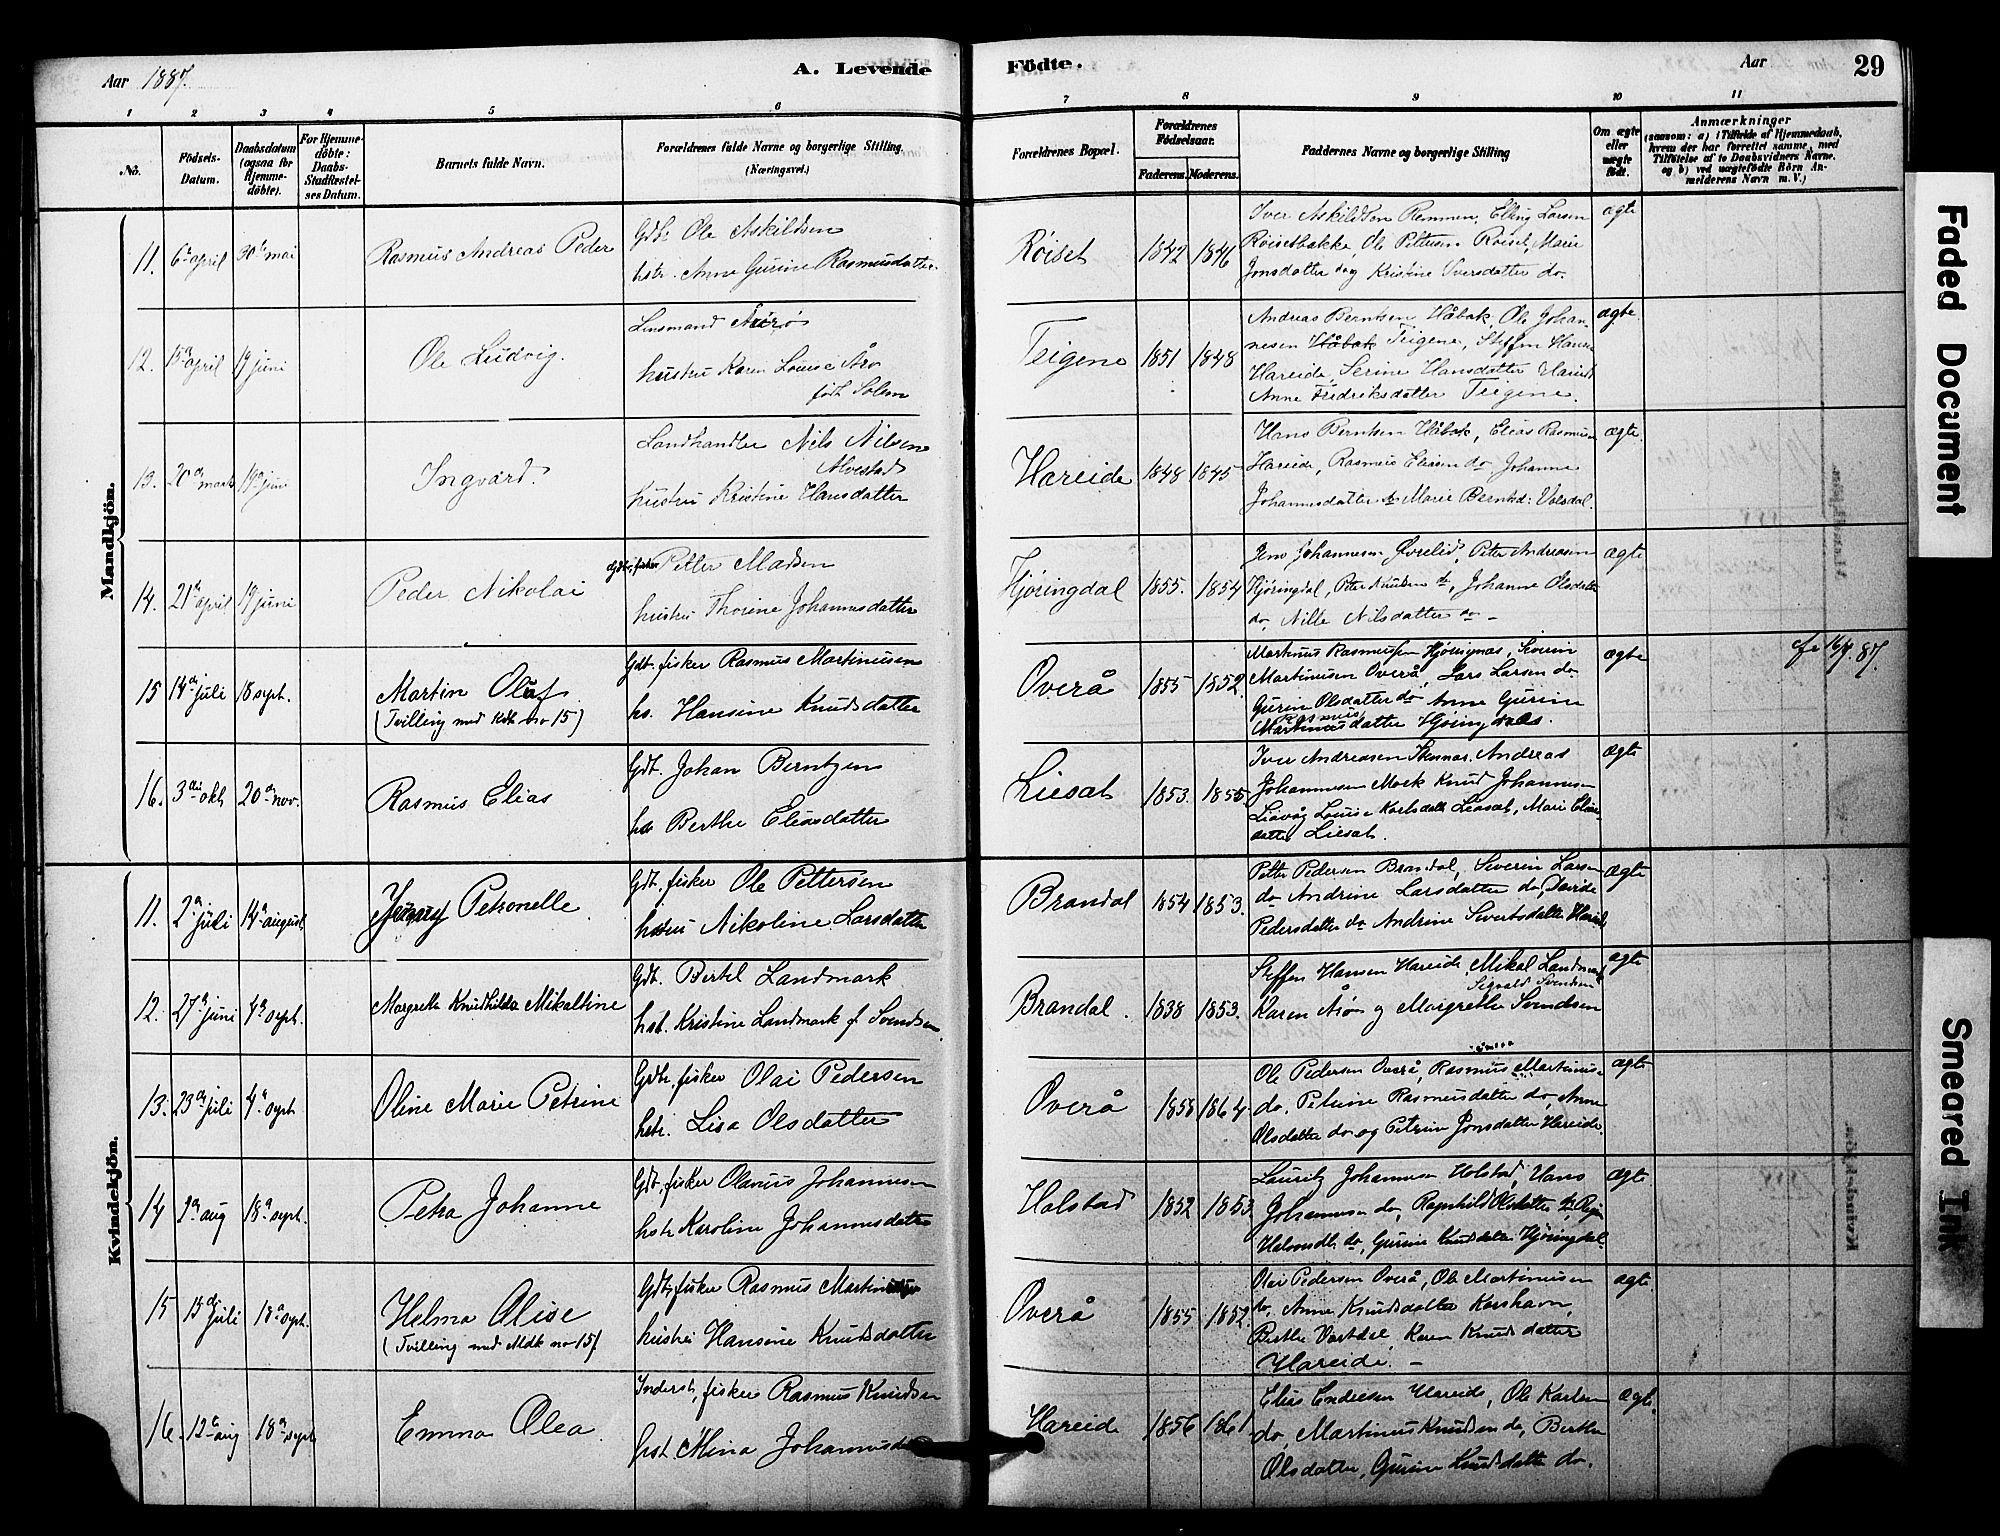 Aar 1887.
A. Levende Födte.
Aar
29
1 2 3 4 5 6 7 8 9 10 11
No.
Födsels-Datum.
Daabsdatum (ogsaa för Hjemme-döbte).
For Hjemme-döbte: Daabs-Stadfæstel-ses Datum.
Barnets fulde Navn.
Forældrenes fulde Navne og borgerlige Stilling.
(Næringsvei.)
Forældrenes Bopæl.
Forældrenes Födselsaar.
Faderens. Moderens.
Faddernes Navne og borgerlige Stilling
Om ægte eller uægte födt.
Anmærkninger
(saasom: a) i Tilfælde af Hjemmedaab, hvem der har forrettet samme, med Tilföielse af to Daabsvidners Navne, og b) ved uægtefödte Börn An-melderens Navn m. V.)
Mandkjön.
11. 6te april 30te mai Rasmus Andreas Peder
Gdbr. Ole Askildsen
hstr. Anne Gurine Rasmusdatter
Röiset 1842 1846
Iver Askildsen Remmen, Elling Larsen
Röisetbakke, Ole Pettersen Röiset, Marie
Jonsdatter do og Kristine Iversdatter do.
ægte
12. 15de april 19 juni Ole Ludvig.
Lensmand Aarø
hustru Karen Louise Aarø
födt Solem
Teigene 1851 1848
Andreas Berntsen Håbak, Ole Johan-
nesen Håbak Teigene, Steffen Hansen
Hareide, Serine Hansdatter Hareide
Anne Fredriksdatter Teigene.
ægte
13. 20de marts 19de juni Ingvard.
Landhandler Nils Nilsen
Alvestad
hustru Kristine Hansdatter
Hareide 1848 1845
Hans Berntsen Håbak, Elias Rasmussen
Hareide, Rasmus Eliasen do Johanne
Johannesdatter do Marie Berntsd: Valsdal.
ægte
14. 21de april 19 juni Peder Nikolai
Gdbr, fisker Petter Madsen
hustru Thorine Johannesdatter
Hjöringdal 1855. 1854
Jens Johannesen Øvrelid, Peter Andreasen
Hjöringdal, Peter Knudsen do, Johanne Olsdatter
do, Nille Nilsdatter do -
ægte
15 14de juli 18 sept. Martin Oluf
(Tvilling med Kdk no 15)
Gdbr. fisker Rasmus Martinusen
hs. Hansine Knudsdatter
Overå 1855 1852
Martinus Rasmussen Hjöringnes, Severin
Martinusen Overå, Lars Larsen do
Gurine Olsdatter do Anne Gurine
Rasmus
Martinusdatter Hjöringdal.
ægte
16. 3die okt 20de nov. Rasmus Elias
Gdb. Johan Berntzen
hstr Berthe Eliasdatter
Liesæt 1853. 1855
Iver Andreasen Skinnes, Andreas
Johannesen Mork Knud Johannesen
Liavåg Louise Karlsdatt Liesæt, Marie Elias-
datter Liesæt.
ægte
Kvindekjön.
11. 2de juli 14de august Jenny Petronelle
Gdb, fisker Ole Pettersen
hustru Nikoline Larsdatter
Brandal 1854 1853.
Petter Pedersen Brandal, Severin Larsen
do Andrine Larsdatter do, Davide
Pedersdatter do Andrine Sivertsdatter Hareide
ægte
12. 27de juni 4de sept. Margrethe Knudhilda Mikaltine
Gdb. Bertel Landmark
hst. Kristine Landmark f. Svendsen
Brandal. 1838 1853.
Steffen Hansen Hareide, Mikal Landmark
Sigvald Svendsen
Karen Aarø og Margrethe Svendsen
ægte
13. 23de juli 4de sept Oline Marie Petrine
Gdbr, fisker Olai Pedersen
hstr. Lisa Olsdatter
Overå 1858 1864.
Ole Pedersen Overå, Rasmus Martinus-
do. Petrine Rasmusdatter do, Anne
Olsdatter do og Petrine Jonsdatter Hareide.
ægte
14 2de aug 18de sept. Petra Johanne
Gdb, fisker Olaus Johannesen
hstr Karoline Johannesdatter
Holstad 1852 1853
Lauritz Johannesen Holstad, Hans
Johannesen do, Ragnhild Olsdatter do,
do, Gurine Knudsdatter Hjöringdal.
ægte
15 15de juli 18de sept. Helma Alise
(Tvilling med Mdk no 15)
Gdb, fisker Rasmus Martinusen
hustru Hansine Knudsdatter
Overå 1855 1852.
Olai Pedersen Overå, Ole Martinusen
do, Anne Knudsdatter Karshavn,
Berthe Vartdal, Karen Knudsdatter
Hareide. -
ægte
16. 12te aug 18de sept Emma Olea
Inderst, fisker Rasmus Knudsen
hst. Mina Johannesdatter
Hareide 1856 1861.
Elias Endresen Hareide, Ole Karlsen
do, Martinus Knudsen do, Berthe
Olsdatter, Gurine Knudsdatter do.
ægte
Faded Document
Smeared Ink